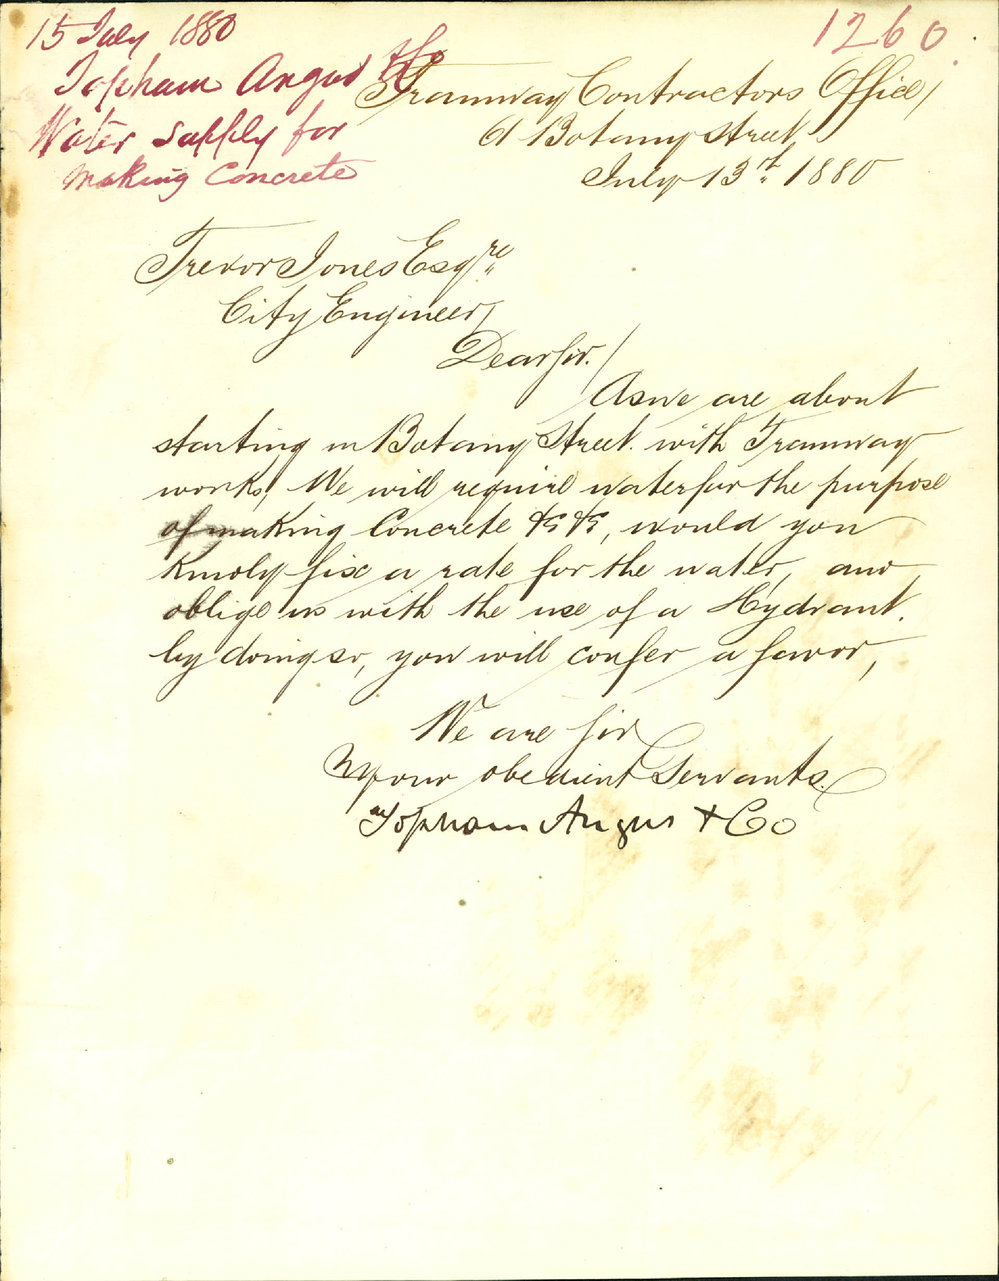 15 July 1880
1260.
Topham Angus &Co
Water Supply for
making Concrete
Tramway Contractors Office,
61 Botany Street
July 13th 1880
Trevor Jones Esqre
City Engineer,
Dear Sir./
As we are about
starting in Botany Street. with Tramway
works, We will require water for the purpose
of making Concrete &c &c, would you
kindly fix a rate for the water, and
oblige us with the use of a Hydrant.
by doing so, you will confer a favor,
We are Sir
Your obedient Servants.
Topham Angus & Co